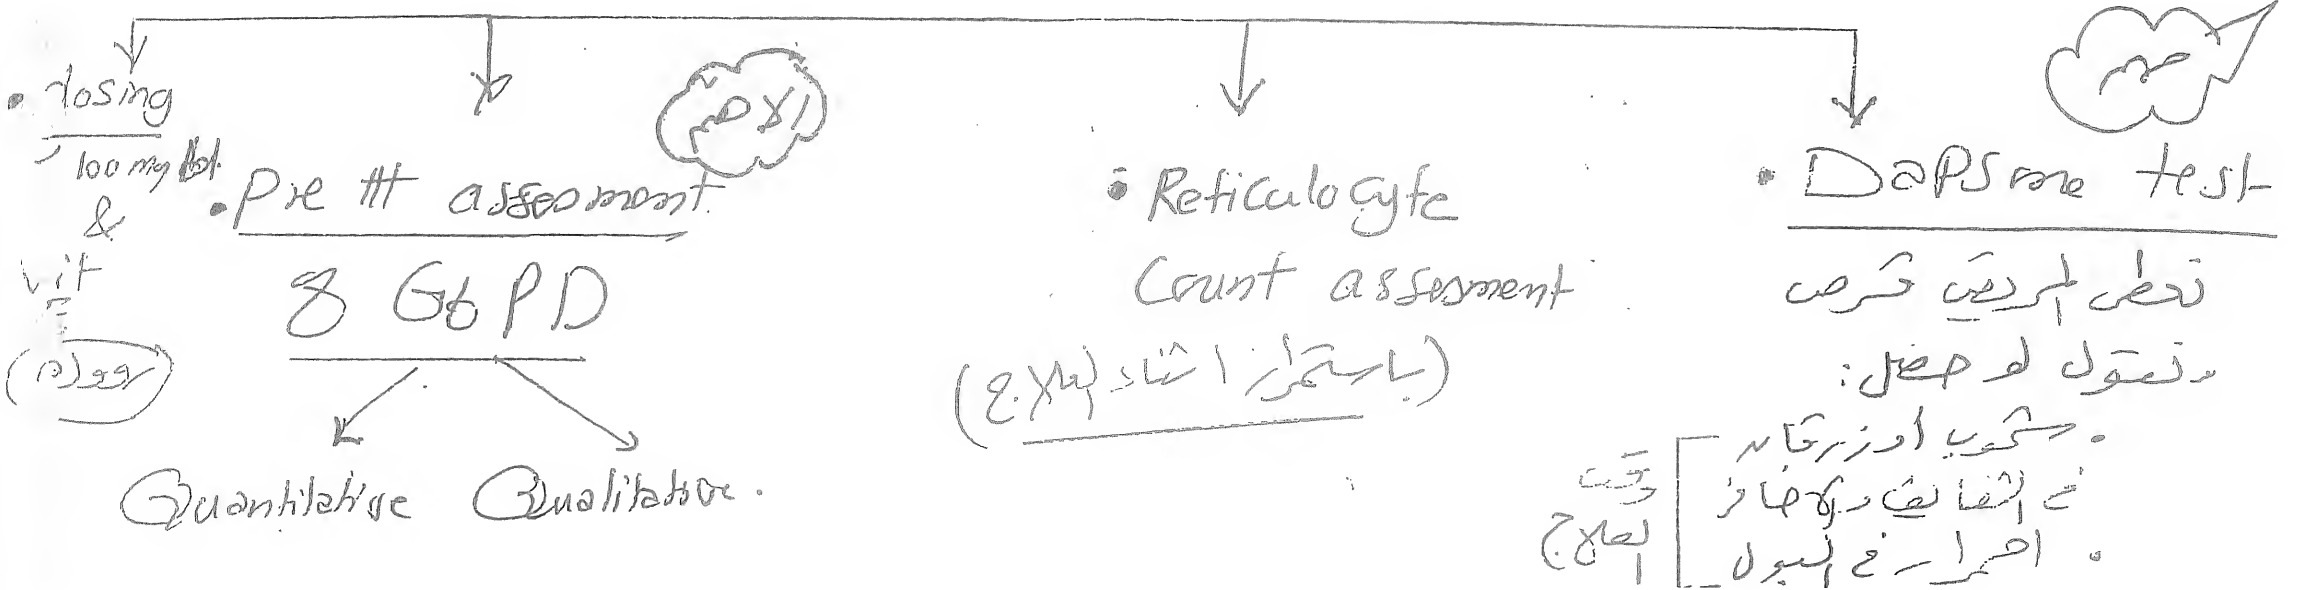 • dosing
100 mg
&
vit
E
• Pre ttt assesment
الاهم
8 G6PD
Quantitative Qualitative.
• Reticulocyte
Count assesment
(باستمرار اثناء العلاج)
مهم
• Dapsone test
نعطى المريض قرص
ونقول لو حصل:
• شحوب او زرقان
فى الشفايف والاضافر
• احمرار فى البول
وقف
العلاج